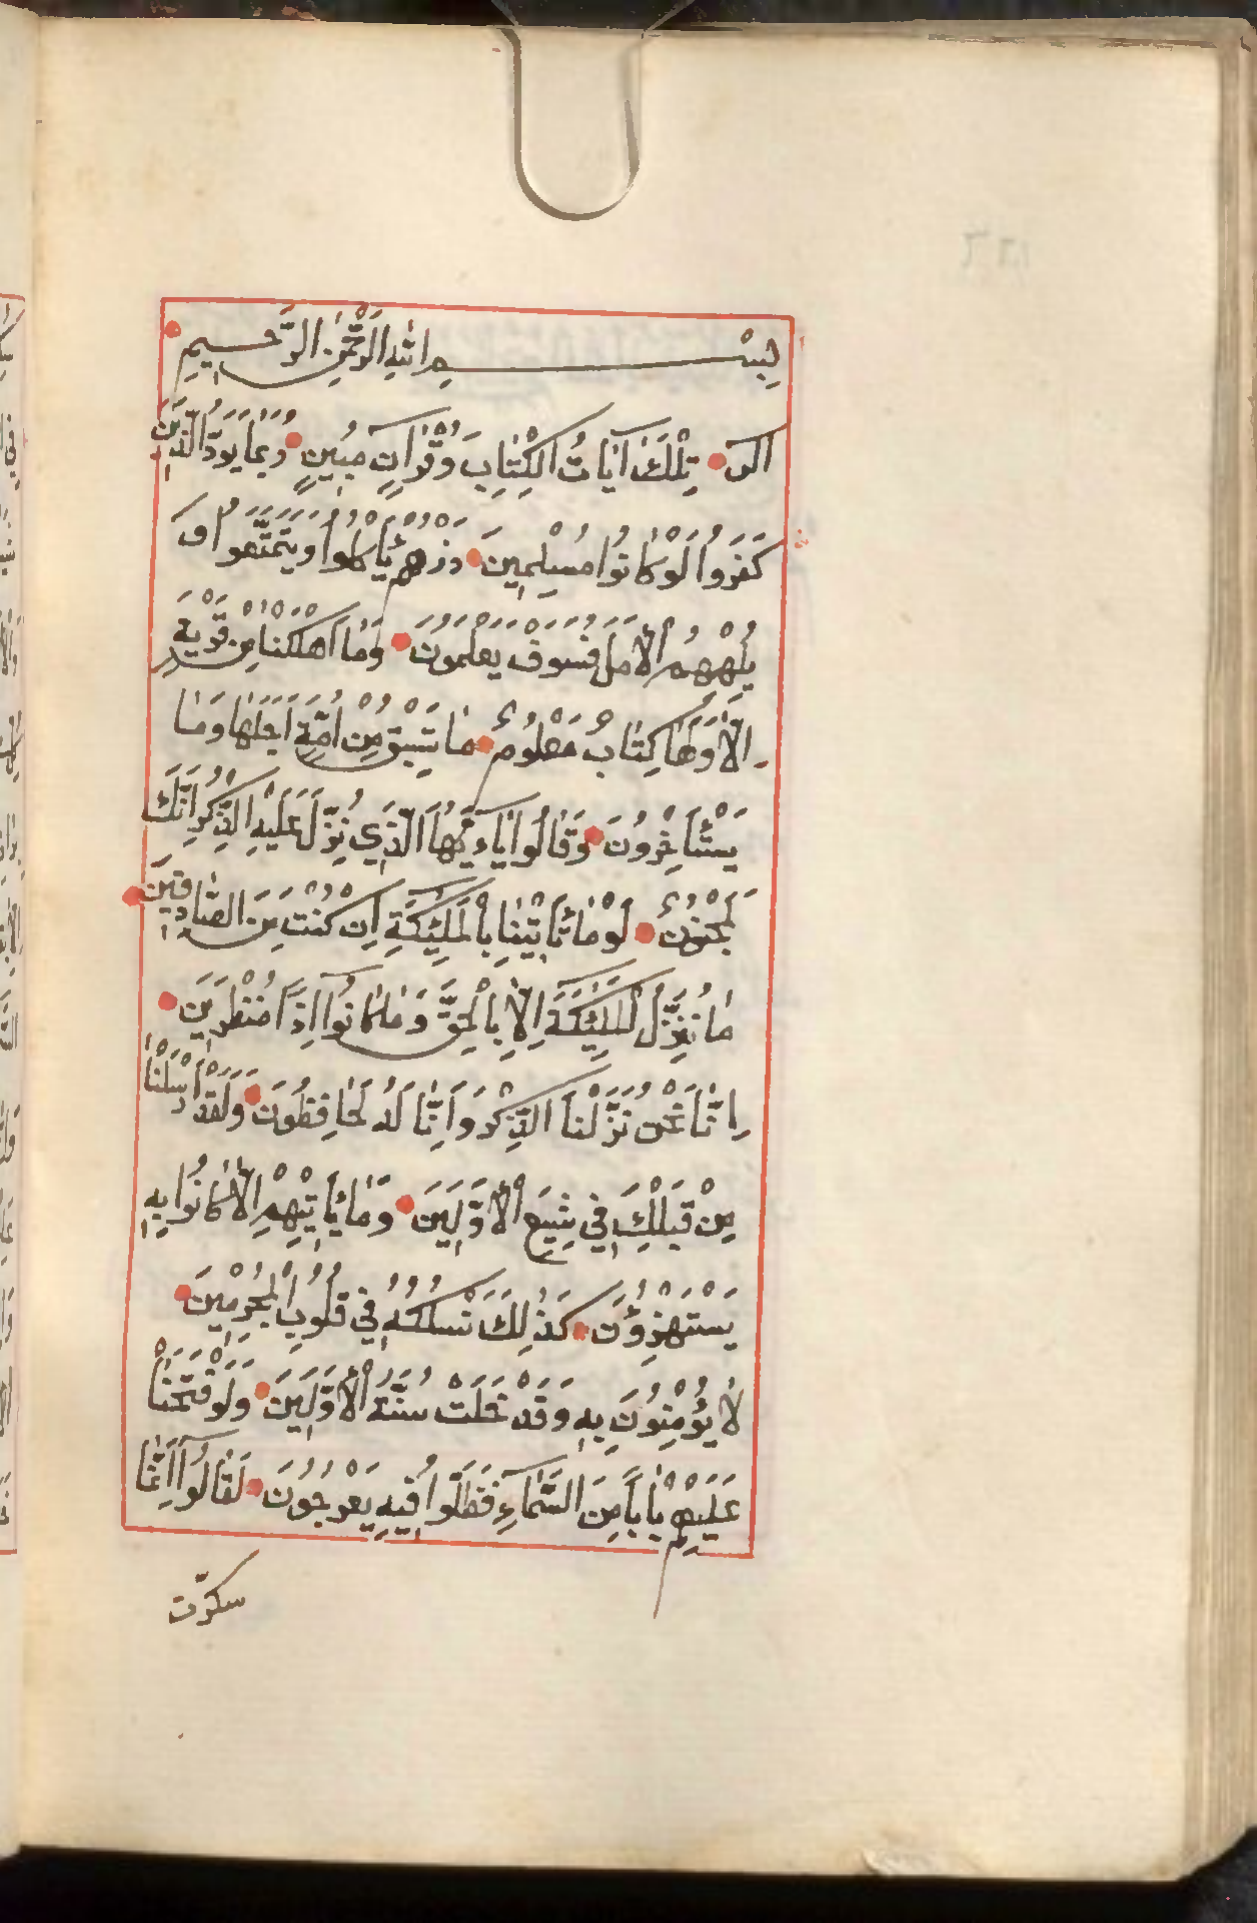 بِسْمِ اللّٰهِ الرَّحْمٰنِ الرَّحِيمِ
الر تِلْكَ آيَاتُ الْكِتَابِ وَقُرْاٰنٍ مُبِينٍ رُبَمَا يَوَدُّ الَّذِينَ
كَفَرُوا لَوْ كَانُوا مُسْلِمِينَ ذَرْهُمْ يَأْكُلُوا وَيَتَمَتَّعُوا وَ
يُلْهِهِمُ الْأَمَلُ فَسَوْفَ يَعْلَمُونَ وَمَا اَهْلَكْنَا مِنْ قَرْيَةٍ
اِلَّا وَلَهَا كِتَابٌ مَعْلُومٌ مَا تَسْبِقُ مِنْ اُمَّةٍ اَجَلَهَا وَمَا
يَسْتَأْخِرُونَ وَقَالُوا يَاءَيُّهَا الَّذِي نُزِّلَ عَلَيْهِ الذِّكْرُ اِنَّكَ
لَمَجْنُونٌ لَوْ مَا تَأْتِينَا بِالْمَلٰئِكَةِ اِنْ كُنْتَ مِنَ الصَّادِقِينَ
مَا نُنَزِّلُ الْمَلٰئِكَةَ اِلَّا بِالْحَقِّ وَمَا كَانُوا اِذًا مُنْظَرِينَ
اِنَّا نَحْنُ نَزَّلْنَا الذِّكْرَ وَاِنَّا لَهُ لَحَافِظُونَ وَلَقَدْ اَرْسَلْنَا
مِنْ قَبْلِكَ فِي شِيَعِ الْأَوَّلِينَ وَمَا يَأْتِيهِمْ اِلَّا كَانُوا بِهِ
يَسْتَهْزِؤُنَ كَذٰلِكَ نَسْلُكُهُ فِي قُلُوبِ الْمُجْرِمِينَ
لَا يُؤْمِنُونَ بِهِ وَقَدْ خَلَتْ سُنَّةُ الْأَوَّلِينَ وَلَوْ فَتَحْنَا
عَلَيْهِمْ بَابًا مِنَ السَّمَاءِ فَظَلُّوا فِيهِ يَعْرُجُونَ لَقَالُوا اِنَّمَا
سكرّت